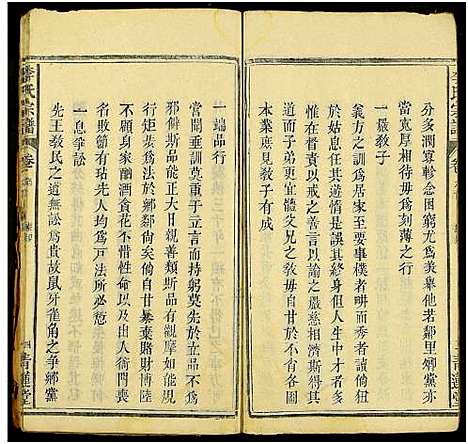 分多潤寡軫念困窮尤爲美舉他如鄉里鄉黨亦
當寬厚相待毋爲刻薄之行
一嚴教子
子弟方入塾居家至要事樸者畊而秀者讀固
甚善也若任其遊惰是悞其終身但人生中才者多
惟在父兄敎戒之善言以諭之嚴慈相濟斯得其
本業庶見敎子有
一端品行
嘗聞垂訓莫重于立言而持躬莫先於立品不爲
邪僻斯品能正大日親善類斯品有觀摩如能規
行矩步爲法於鄉鄰何矣倘自甘暴棄賭財博陸
不顧身家酗酒貪花不惜性命以及不忠不孝於
名敎節有玷先人均爲戸法所必處
一息爭訟
先王敎民之道無訟爲貴故鼠牙雀角之爭鄉黨
李氏宗譜
卷
四
青蓮堂